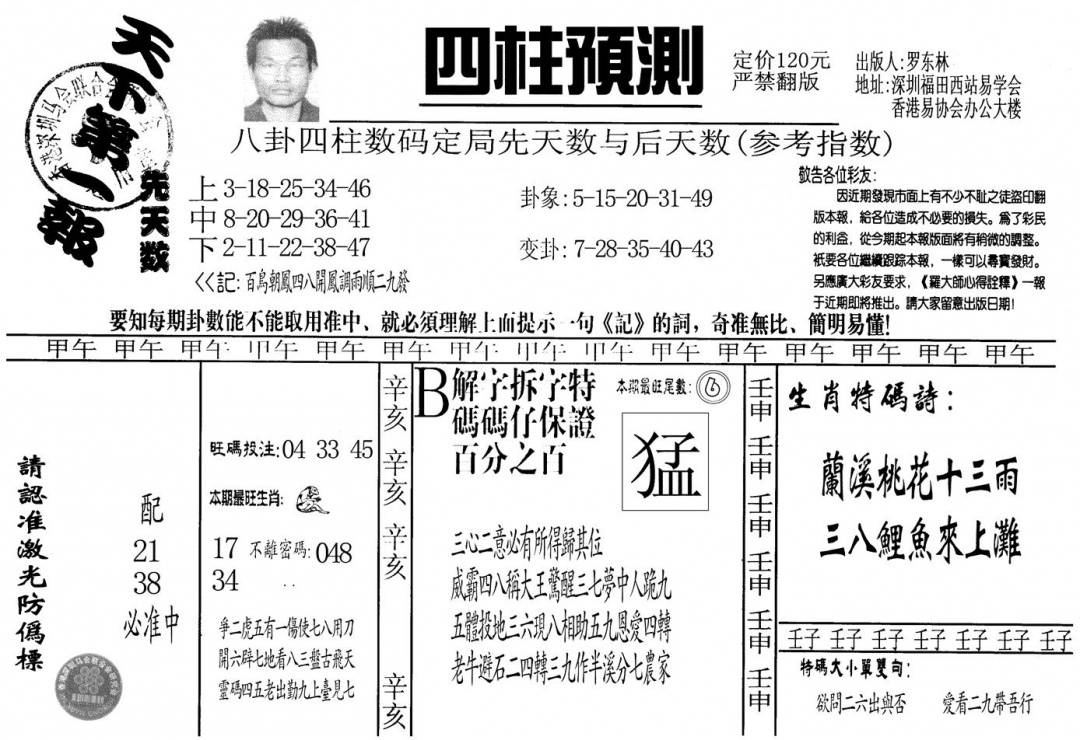 天下第一報
四柱預測
定价120元
严禁翻版
出版人:罗东林
地址:深圳福田西站易学会
香港易协会办公大楼
八卦四柱数码定局先天数与后天数(参考指数)
先天数
上3-18-25-34-46
中8-20-29-36-41
下2-11-22-38-47
卦象:5-15-20-31-49
变卦:7-28-35-40-43
<<記:百鳥朝鳳四八開鳳調雨順二九發
敬告各位彩友:
因近期發現市面上有不少不耻之徒盜印翻
版本報,給各位造成不必要的損失。爲了彩民
的利益,從今期起本報版面將有稍微的調整。
祇要各位繼續跟踪本報,一樣可以尋寶發財。
另應廣大彩友要求,《羅大師心得詮釋》一報
于近期即將推出。請大家留意出版日期!
要知每期卦數能不能取用准中、就必須理解上面提示一句《記》的詞,奇准無比、簡明易懂!
甲午 甲午 甲午 甲午 甲午 甲午 甲午 甲午 甲午 甲午 甲午 甲午 甲午 甲午 甲午
請認准激光防僞標
配
21
38
必准中
旺碼投注:04 33 45
本期最旺生肖:
17 不離密碼:048
34
爭二虎五有一傷使七八用刀
開六辟七地看八三盤古飛天
靈碼四五老出勤九上臺見七
辛亥
辛亥
辛亥
辛亥
B解字拆字特
碼碼仔保證
百分之百
本期最旺尾數:⑥
猛
三心二意必有所得歸其位
威霸四八稱大王驚醒三七夢中人跪九
五體投地三六現八相助五九恩愛四轉
老牛避石二四轉三九作半溪分七農家
壬申
壬申
壬申
壬申
壬申
壬申
生肖特碼詩:
蘭溪桃花十三雨
三八鯉魚來上灘
壬子 壬子 壬子 壬子 壬子 壬子 壬子
特碼大小單雙句:
欲問二六出與否 愛看二九帶吾行